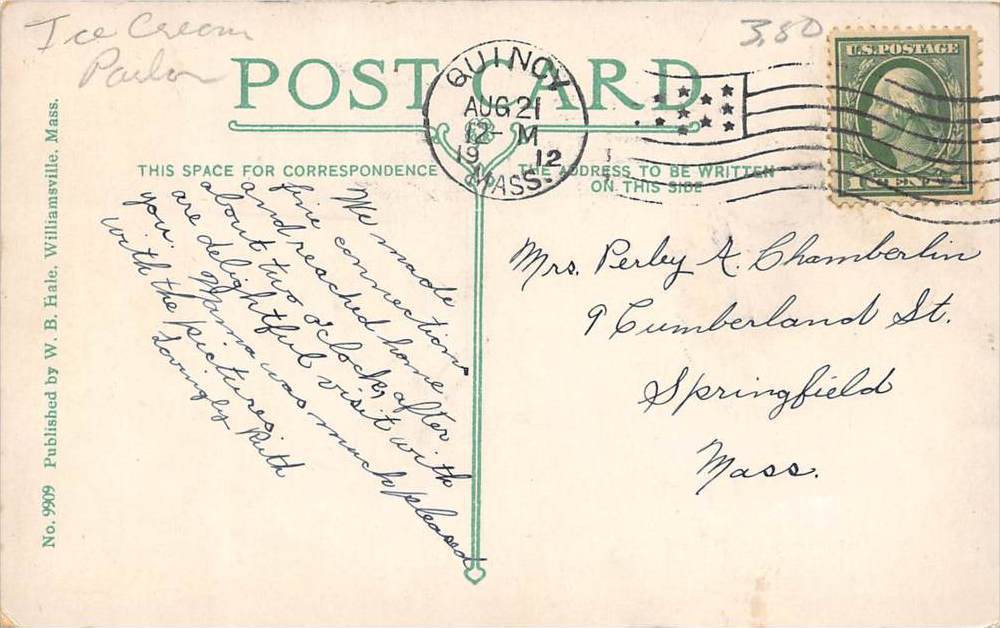 Ice Cream
Parlor
3.80
POST CARD
U.S. POSTAGE
QUINCY
AUG 21
12 - M
19 12
MASS.
THIS SPACE FOR CORRESPONDENCE
THE ADDRESS TO BE WRITTEN
ON THIS SIDE
We made
fine connections
and reached home
about two o'clock, after
a delightful visit with
you. Mama was much pleased
with the pictures.
Lovingly Ruth
Mrs. Perley A. Chamberlin
9 Cumberland St.
Springfield
Mass.
No. 9909 Published by W. B. Hale, Williamsville, Mass.